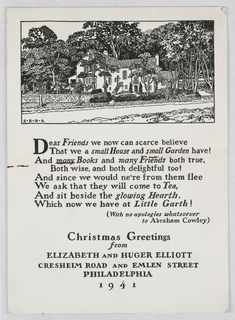 E·A·R·E
Dear Friends we now can scarce believe
That we a small House and small Garden have!
And many Books and many Friends both true,
Both wise, and both delightful too!
And since we would ne're from them flee
We ask that they will come to Tea,
And sit beside the glowing Hearth,
Which now we have at Little Garth!
(With no apologies whatsoever
to Abraham Cowley)
Christmas Greetings
from
ELIZABETH AND HUGER ELLIOTT
CRESHEIM ROAD AND EMLEN STREET
PHILADELPHIA
1941